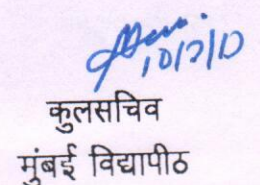 10/2/10
कुलसचिव
मुंबई विद्यापीठ